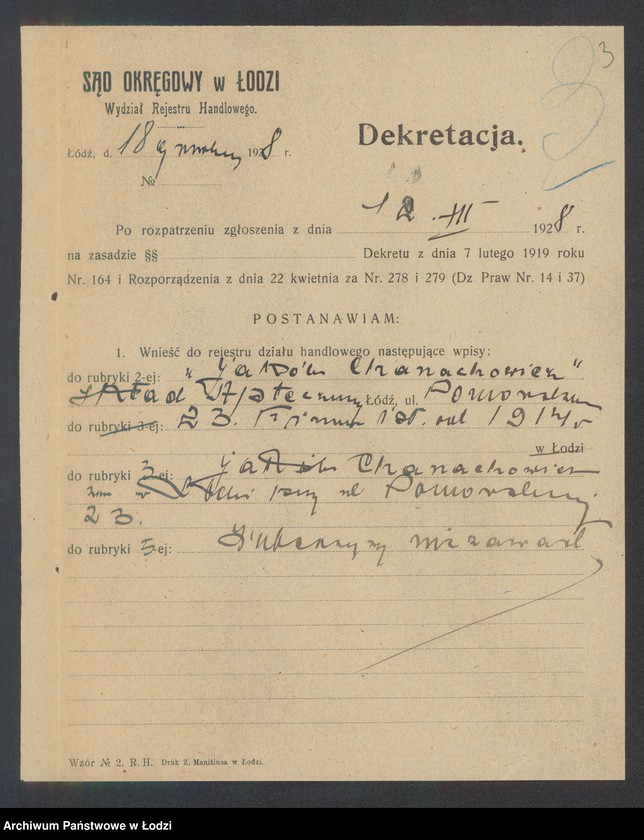 3
SĄD OKRĘGOWY w ŁODZI
Wydział Rejestru Handlowego.
Dekretacja.
Łódź, d. 18 grudnia 1928 r.
№
12 XII
Po rozpatrzeniu zgłoszenia z dnia 1928 r.
na zasadzie §§ Dekretu z dnia 7 lutego 1919 roku
Nr. 164 i Rozporządzenia z dnia 22 kwietnia za Nr. 278 i 279 (Dz. Praw Nr. 14 i 37)
POSTANAWIAM:
1. Wnieść do rejestru działu handlowego następujące wpisy:
do rubryki 2-ej: „Jakób Chanachowicz"
skład Łódź, ul. Pomorska
do rubryki 3-ej: 23. Firma istn. od 1914 r
w Łodzi
do rubryki 3-ej: Jakób Chanachowicz
zam w Łodzi przy ul Pomorskiej
23.
do rubryki 5-ej: Intercyzy nie zawarł
Wzór № 2. R. H. Druk Z. Manitiusa w Łodzi.
Archiwum Państwowe w Łodzi